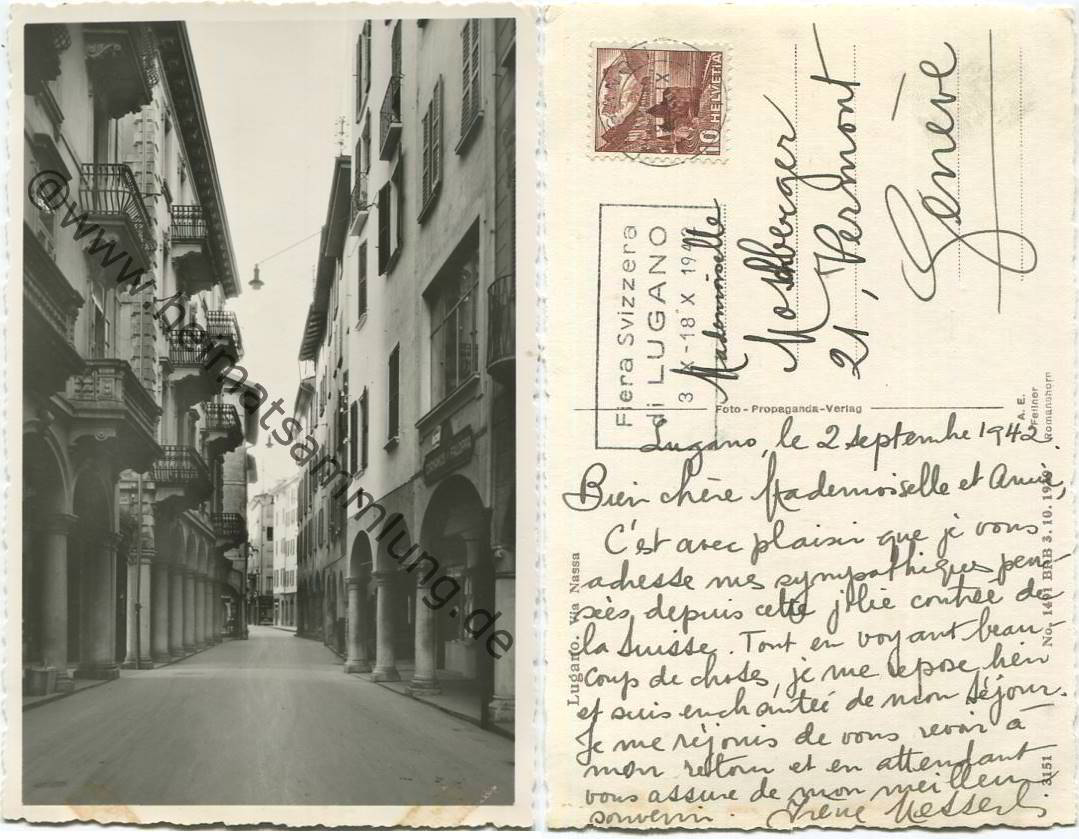 ©www.heimatsammlung.de
HELVETIA
10
Fiera Svizzera
di LUGANO
3 X-18 X 194
Mademoiselle
Mossberger
21, Vermont
Genève
Foto-Propaganda-Verlag
A. E.
Fellner
Romanshorn
Lugano, Via Nassa
No. 1491 BRB 3. 10. 1939
3151
Lugano, le 2 septembre 1942.
Bien chère Mademoiselle et Amie,
C'est avec plaisir que je vous
adresse mes sympathiques pen-
sées, depuis cette jolie contrée de
la Suisse. Tout en voyant beau-
coup de choses, je me repose bien
et suis enchantée de mon séjour.
Je me réjouis de vous revoir à
mon retour et en attendant
vous assure de mon meilleur
souvenir.
Irène Messerli